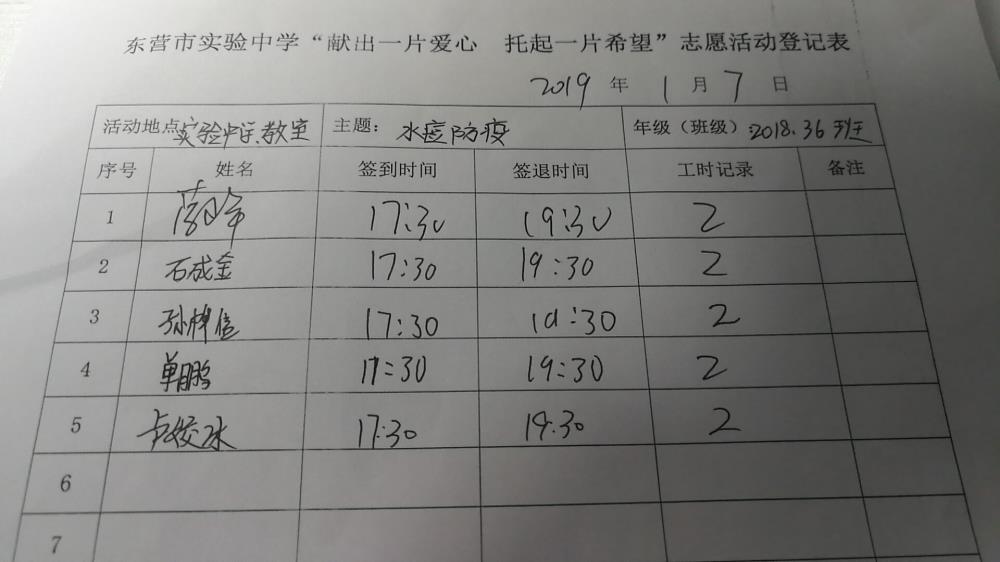 东营市实验中学“献出一片爱心 托起一片希望”志愿活动登记表
2019 年 1 月 7 日
活动地点 实验中学.教室 主题: 水痘防疫 年级（班级）:2018.36班
序号 姓名 签到时间 签退时间 工时记录 备注
1 17:30 19:30 2
2 石成金 17:30 19:30 2
3 17:30 19:30 2
4 单鹏 17:30 19:30 2
5 17:30 19:30 2
6
7